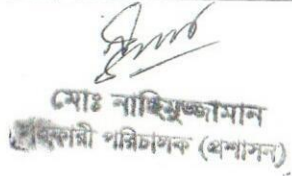 মোঃ নাহিদুজ্জামান
সহকারী পরিচালক (প্রশাসন)